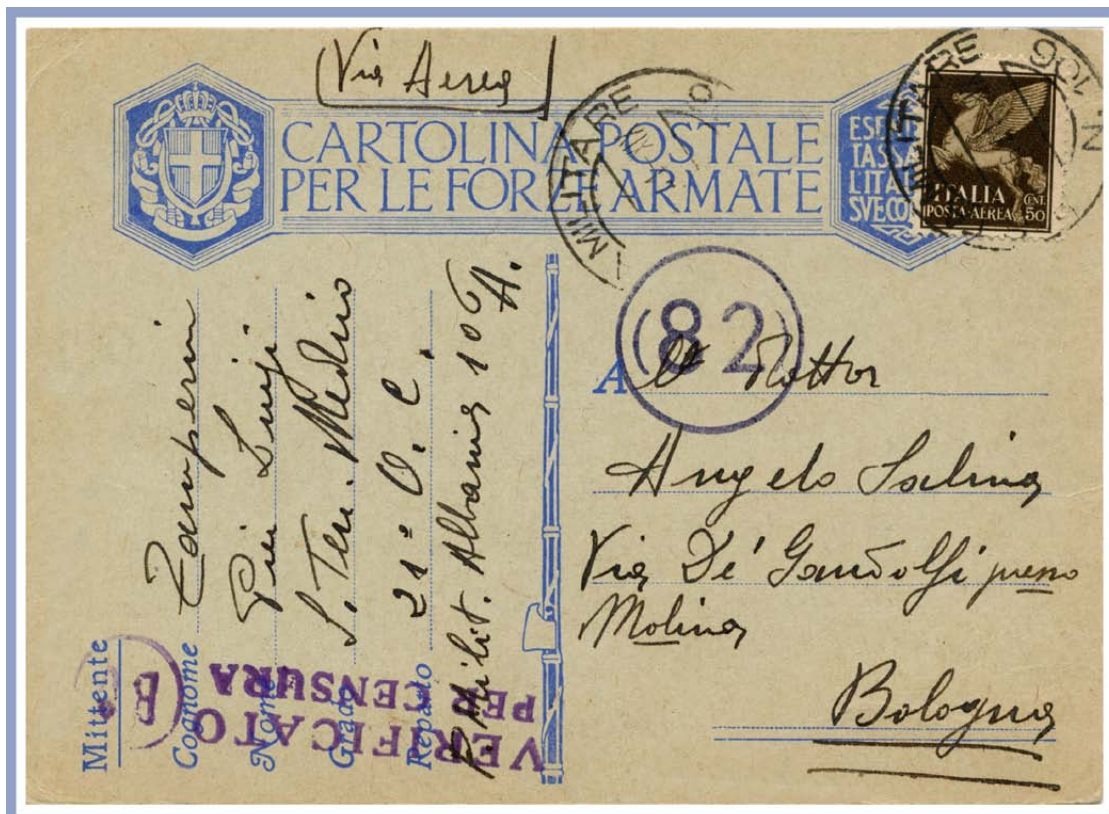 (Via Aerea)
CARTOLINA POSTALE
PER LE FORZE ARMATE
ITALIA
POSTA-AEREA CENT. 50
MILITARE
MILITARE N. 106
82
A
Dottor
Angelo Salina
Via De' Gandolfi presso
Molina
Bologna
Mittente
Cognome Zamperini
Nome Pier Luigi
Grado S. Ten. Medico
Reparto 21° O. C.
P. Milit. Albania 106 A.
VERIFICATO
PER CENSURA